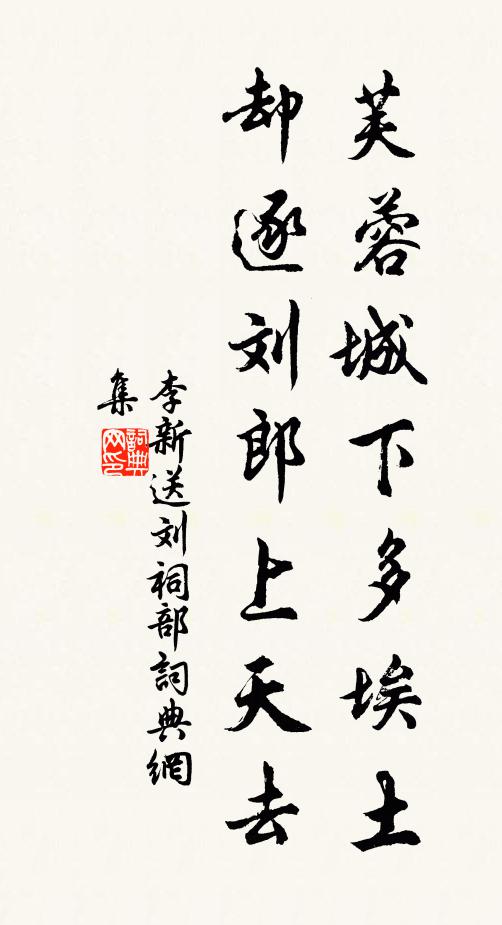 芙蓉城下多埃土
却逐刘郎上天去
李新送刘祠部詞典網
集
詞典
网印